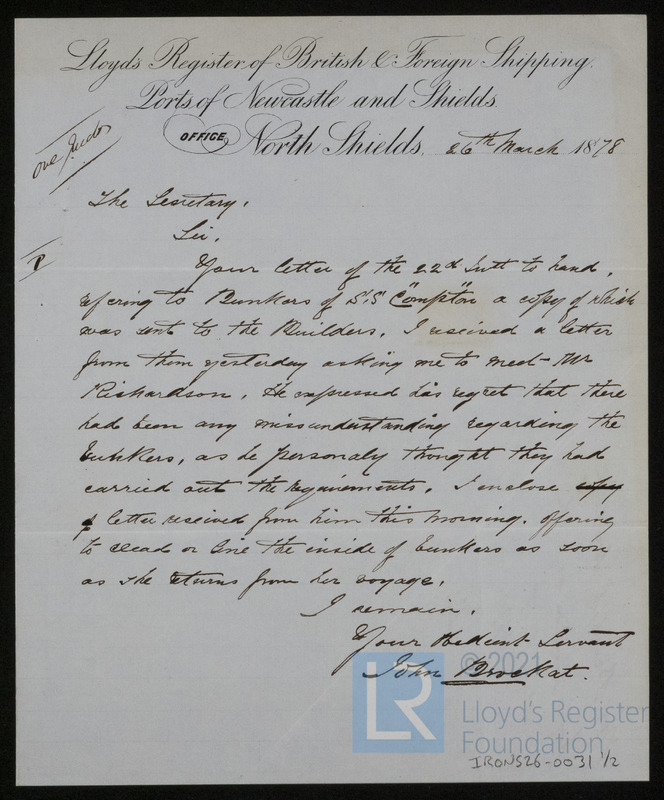 Lloyd's Register of British & Foreign Shipping.
Ports of Newcastle and Shields.
OFFICE, North Shields, 26th March 1878
one Indor
The Secretary.
Sir.
Your letter of the 22nd Instt to hand,
refering to Bunkers of S.S. "Compton" a copy of which
was sent to the Builders. I received a letter
from them yesterday asking me to meet Mr
Richardson. He expressed his regret that there
had been any missunderstanding regarding the
Bunkers, as he personaly thought they had
carried out the requirements. I enclose copy
of letter received from him this morning. Offering
to clead or line the inside of bunkers as soon
as she returns from her voyage.
I remain.
Your Obedient Servant
John Brockat.
© 2021
LR
Lloyd's Register
Foundation
IRON526-0031 1/2